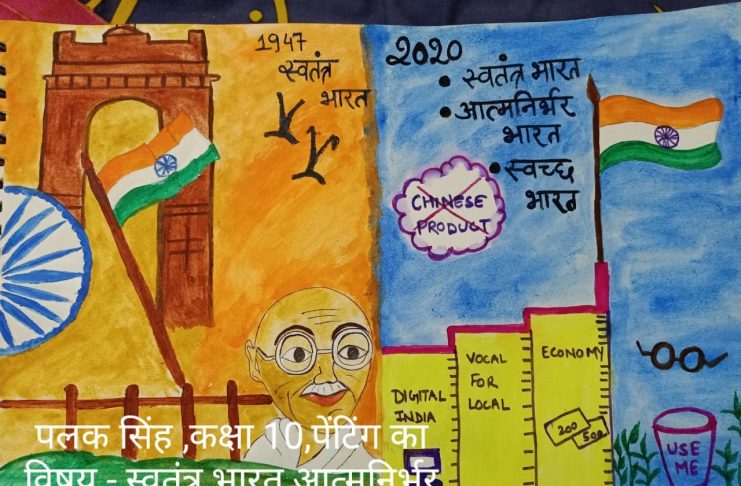 1947
स्वतंत्र
भारत
2020
• स्वतंत्र भारत
• आत्मनिर्भर
भारत
• स्वच्छ
भारत
CHINESE
PRODUCT
DIGITAL
INDIA
VOCAL
FOR
LOCAL
ECONOMY
200
500
USE
ME
पलक सिंह ,कक्षा 10,पेंटिंग का
विषय - स्वतंत्र भारत आत्मनिर्भर